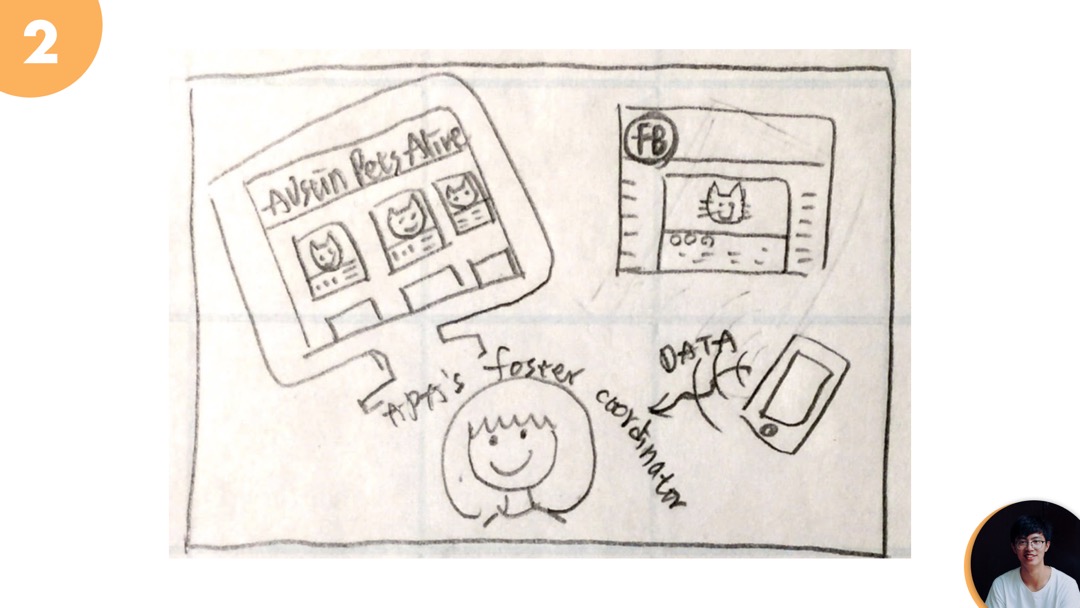 2
Austin Pets Alive
FB
DATA
APA's foster coordinator